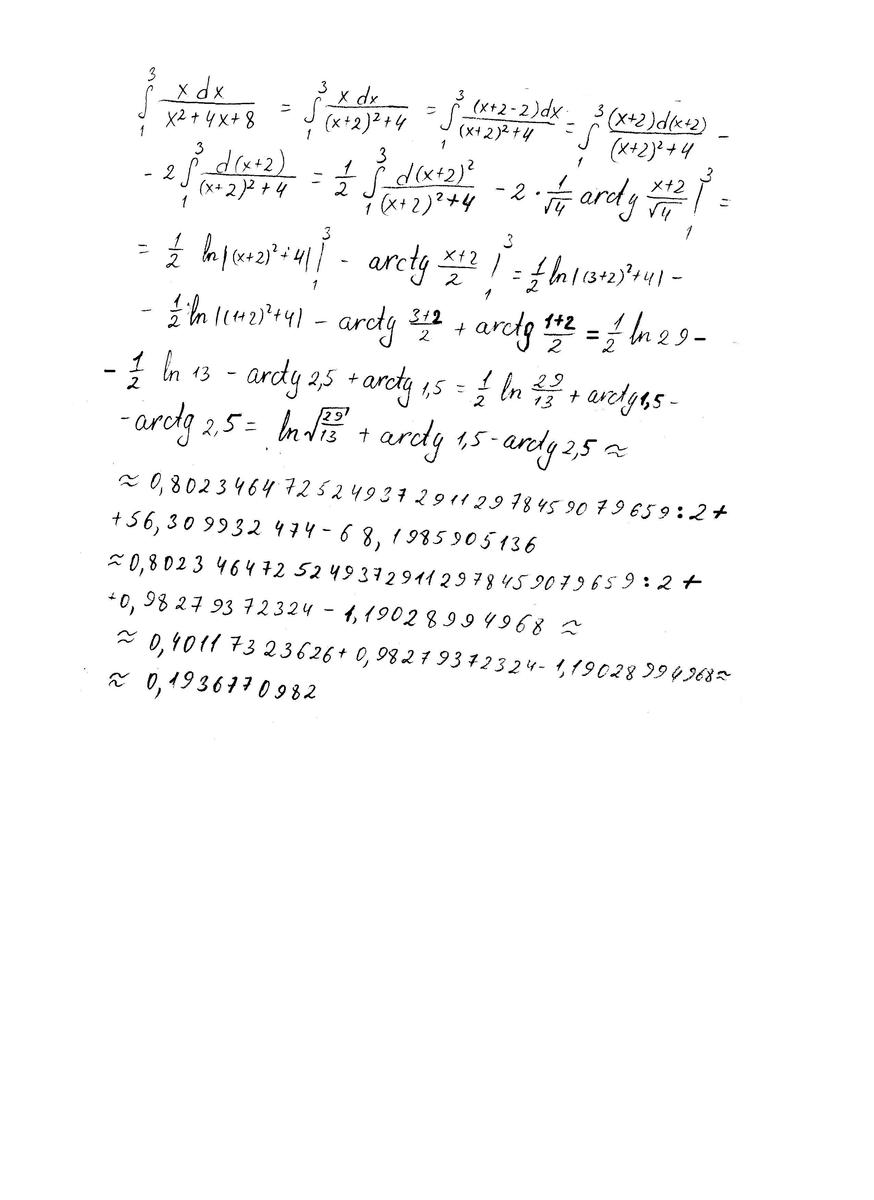 ∫₁³ x dx / (x² + 4x + 8) = ∫₁³ x dx / ((x+2)² + 4) = ∫₁³ (x+2-2)dx / ((x+2)² + 4) = ∫₁³ (x+2)d(x+2) / ((x+2)² + 4) -
- 2 ∫₁³ d(x+2) / ((x+2)² + 4) = 1/2 ∫₁³ d(x+2)² / ((x+2)² + 4) - 2 · 1/√4 arctg (x+2)/√4 |₁³ =
= 1/2 ln|(x+2)² + 4| |₁³ - arctg (x+2)/2 |₁³ = 1/2 ln|(3+2)²+4| -
- 1/2 ln|(1+2)²+4| - arctg (3+2)/2 + arctg (1+2)/2 = 1/2 ln 29 -
- 1/2 ln 13 - arctg 2,5 + arctg 1,5 = 1/2 ln 29/13 + arctg 1,5 -
- arctg 2,5 = ln √(29/13) + arctg 1,5 - arctg 2,5 ≈
≈ 0,80234647252493729112978459079659 : 2 +
+ 56,309932474 - 68,1985905136
≈ 0,80234647252493729112978459079659 : 2 +
+ 0,98279372324 - 1,19028994968 ≈
≈ 0,40117323626 + 0,98279372324 - 1,19028994968 ≈
≈ 0,1936770982